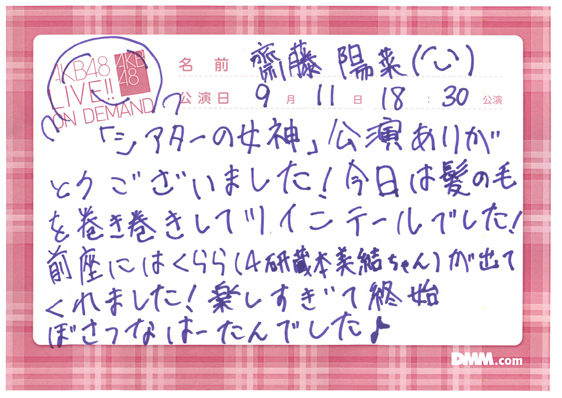 AKB48
LIVE!!
ON DEMAND
AKB
48
名前 齋藤 陽菜(
公演日 9月11日 18:30公演
「シアターの女神」公演ありが
とうございました!今日は髪の毛
を巻き巻きしてツインテールでした!
前座にはくらら(4研蔵本美結ちゃん)が出て
くれました!楽しすぎて終始
ぼさつなはーたんでした♪
DMM.com